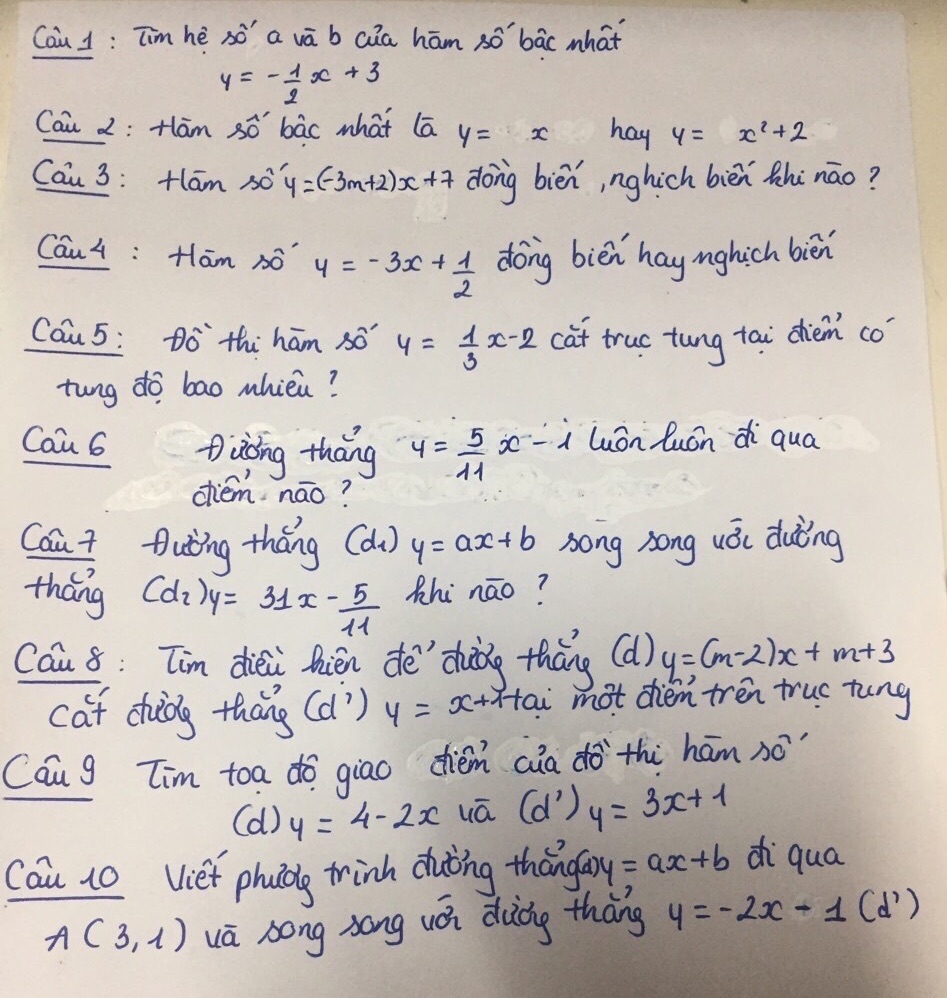 Câu 1 : Tìm hệ số a và b của hàm số bậc nhất
y = - 1/2 x + 3
Câu 2 : Hàm số bậc nhất là y = x hay y = x² + 2
Câu 3 : Hàm số y = (-3m+2)x + 7 đồng biến, nghịch biến khi nào ?
Câu 4 : Hàm số y = - 3x + 1/2 đồng biến hay nghịch biến
Câu 5 : Đồ thị hàm số y = 1/3 x - 2 cắt trục tung tại điểm có
tung độ bao nhiêu ?
Câu 6 Đường thẳng y = 5/11 x - 1 luôn luôn đi qua
điểm nào ?
Câu 7 Đường thẳng (d₁) y = ax + b song song với đường
thẳng (d₂) y = 31x - 5/11 khi nào ?
Câu 8 : Tìm điều kiện để đường thẳng (d) y = (m-2)x + m+3
cắt đường thẳng (d') y = x+1 tại một điểm trên trục tung
Câu 9 Tìm toạ độ giao điểm của đồ thị hàm số
(d) y = 4 - 2x và (d') y = 3x + 1
Câu 10 Viết phương trình đường thẳng y = ax + b đi qua
A ( 3, 1 ) và song song với đường thẳng y = - 2x - 1 (d')